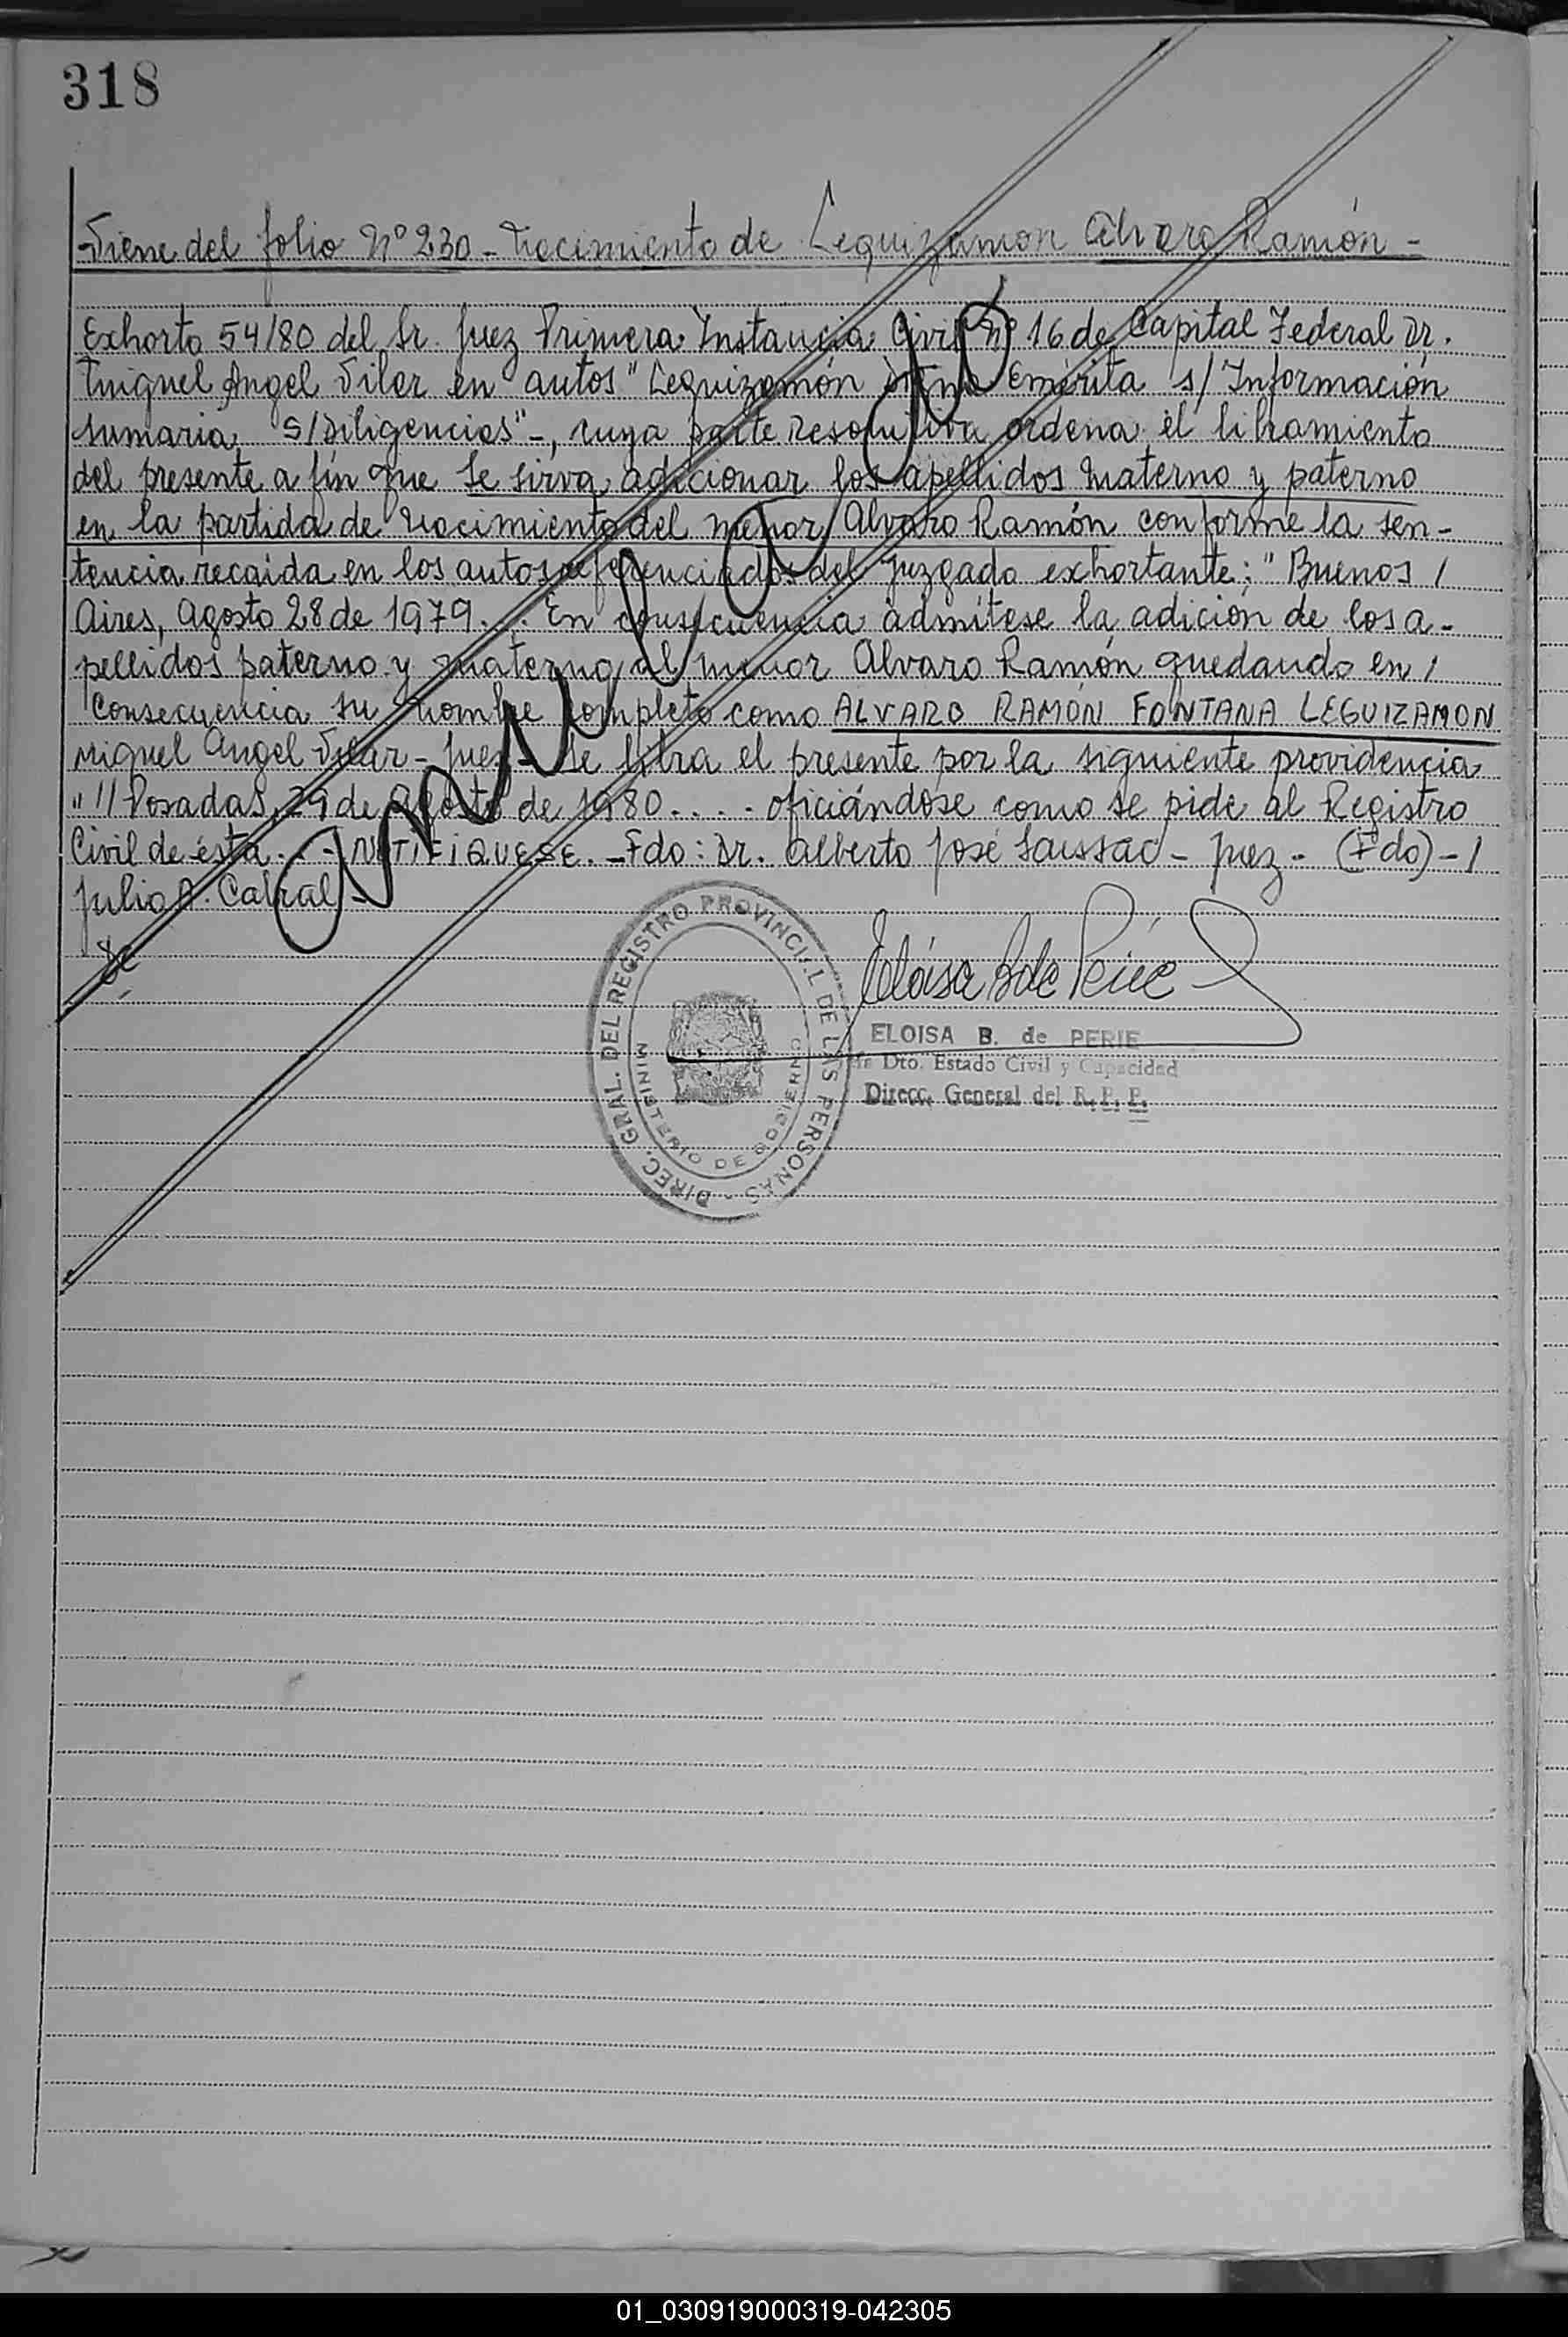 318
Viene del folio Nº 230 - Nacimiento de Leguizamon Alvaro Ramón -
Exhorto 54/80 del Sr. Juez Primera Instancia Civil nº 16 de Capital Federal Dr.
Miguel Angel Vilar en autos "Leguizamón Emérita s/ Información
sumaria S/Diligencias"-, cuya parte resolutiva ordena el libramiento
del presente a fín que se sirva adicionar los apellidos materno y paterno
en la partida de nacimiento del menor Alvaro Ramón conforme la sen-
tencia recaída en los autos referenciados del juzgado exhortante: "Buenos /
Aires, Agosto 28 de 1979... En consecuencia admítese la adición de los a-
pellidos paterno y materno al menor Alvaro Ramón quedando en /
Consecuencia su nombre completo como ALVARO RAMÓN FONTANA LEGUIZAMON
Miguel Angel Vilar - Juez - Se libra el presente por la siguiente providencia
"// Posadas, 29 de Agosto de 1980.... oficiándose como se pide al Registro
Civil de ésta... NOTIFIQUESE. - Fdo: Dr. Alberto José - Juez - (Fdo) - /
Julio A. Cabral -
ANULADO
DIREC. GRAL. DEL REGISTRO PROVINCIAL DE LAS PERSONAS -
MINISTERIO DE GOBIERNO
Eloisa B de Perié
ELOISA B. de PERIE
Dto. Estado Civil y Capacidad
Direcc. General del R. P. P.
01_030919000319-042305